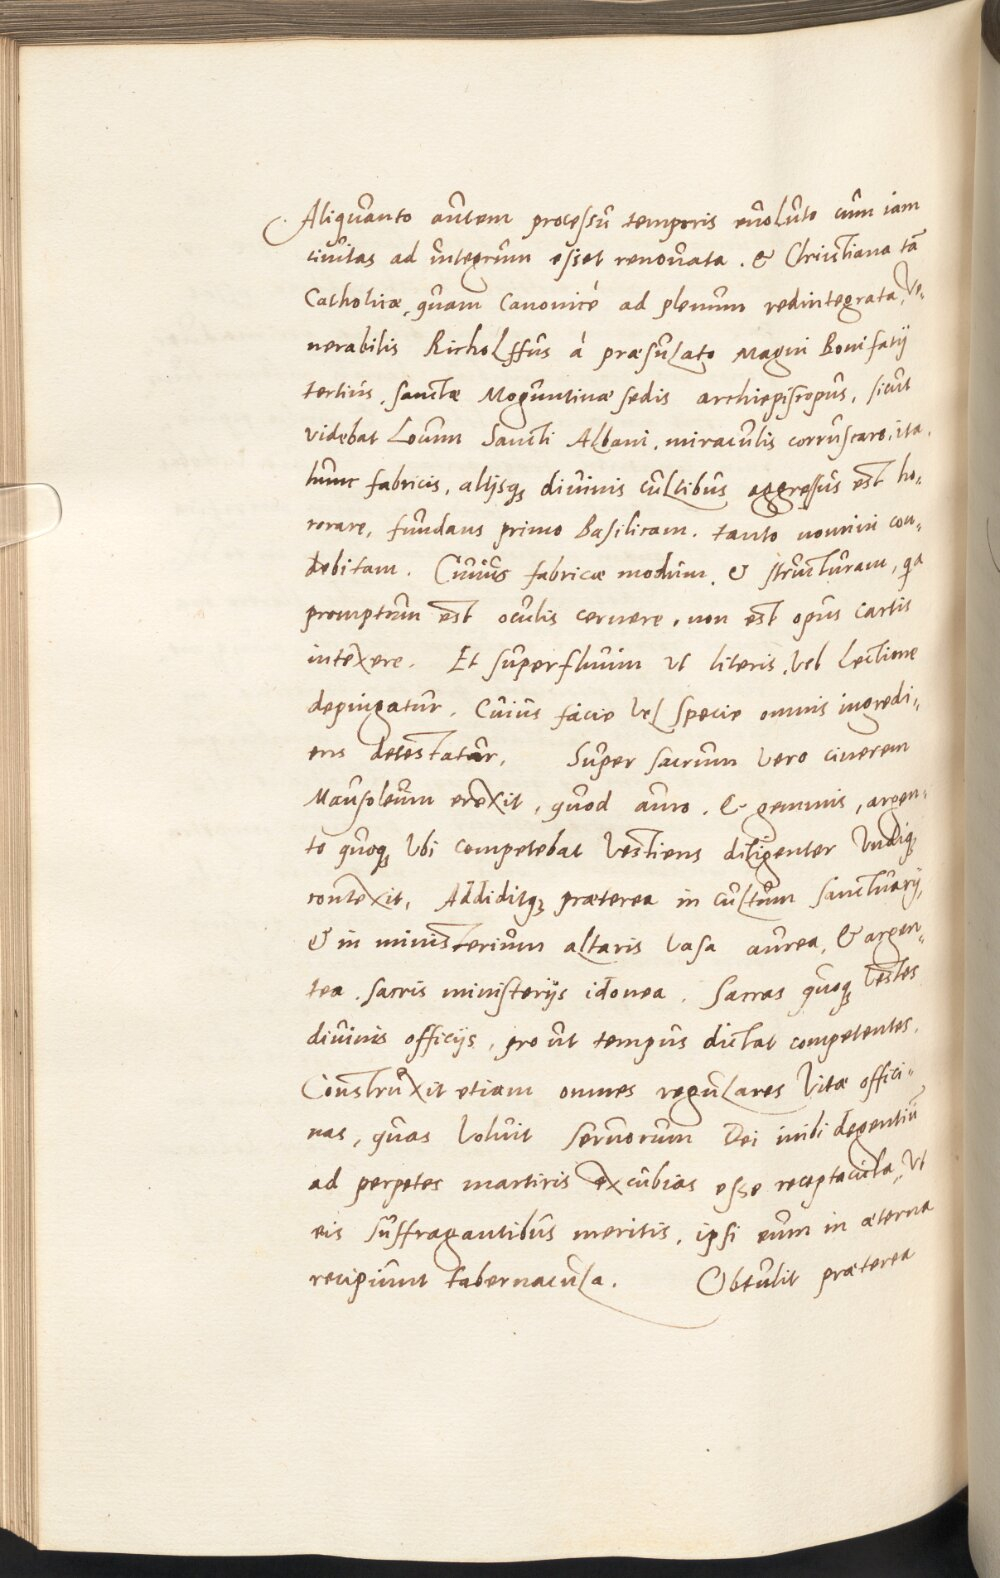 Aliquanto autem processu temporis euoluto cum iam
ciuitas ad integrum esset renouata. & Christiana tā
Catholicæ, quam Canonicè ad plenum redintegrata, Ve-
nerabilis Richolffus á præsulato Magni Bonifatij
tertius, sanctæ Moguntinæ sedis archiepiscopus, sicut
videbat Locum Sancti Albani, miraculis corruscare, ita
hunc fabricis, alijsq; diuinis cultibus aggressus est ho-
rorare, fundans primo Basilicam. tanto nomini con-
debitam. Cuius fabricæ modum, & structuram, qa
promptum est oculis cernere, non est opus cartis
intexere. Et superfluum ut literis, Vel Lectione
depingatur. Cuius facie Vel specie omnis ingredi-
ens detestatur. Super sacrum Vero cinerem
Mausoleum erexit, quod auro, & gemmis, argen-
to quoq; Vbi competebat Vestiens diligenter Vndiq;
contexit, Addiditq; præterea in cultum sanctuarij,
& in ministerium altaris Vasa aurea, & argen-
tea, sacris ministerijs idonea. Sacras quoq; Vestes
diuinis officijs, pro ut tempus dictat competentes.
Construxit etiam omnes regulares Vitæ offici-
nas, quas Voluit seruorum Dei inibi degentiū
ad perpetes martiris excubias esse receptacula, Vt
eis suffragantibus meritis, ipsi eum in æterna
recipiunt tabernacula. Obtulit præterea